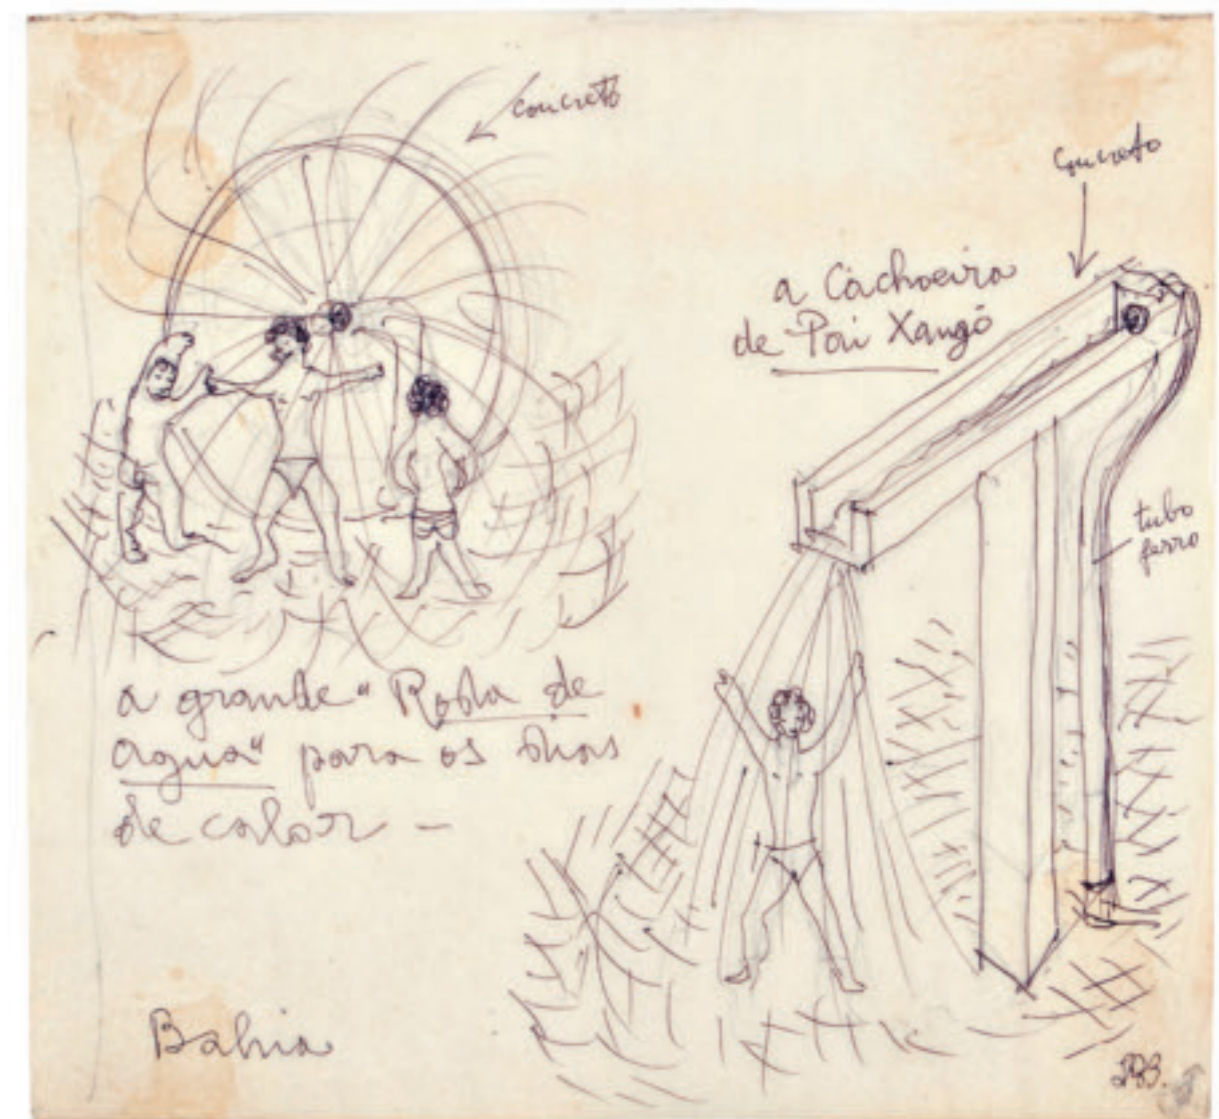 concreto
a grande "Roda de
agua" para os dias
de calor –
Bahia
concreto
a Cachoeira
de Pai Xangó
tubo
ferro